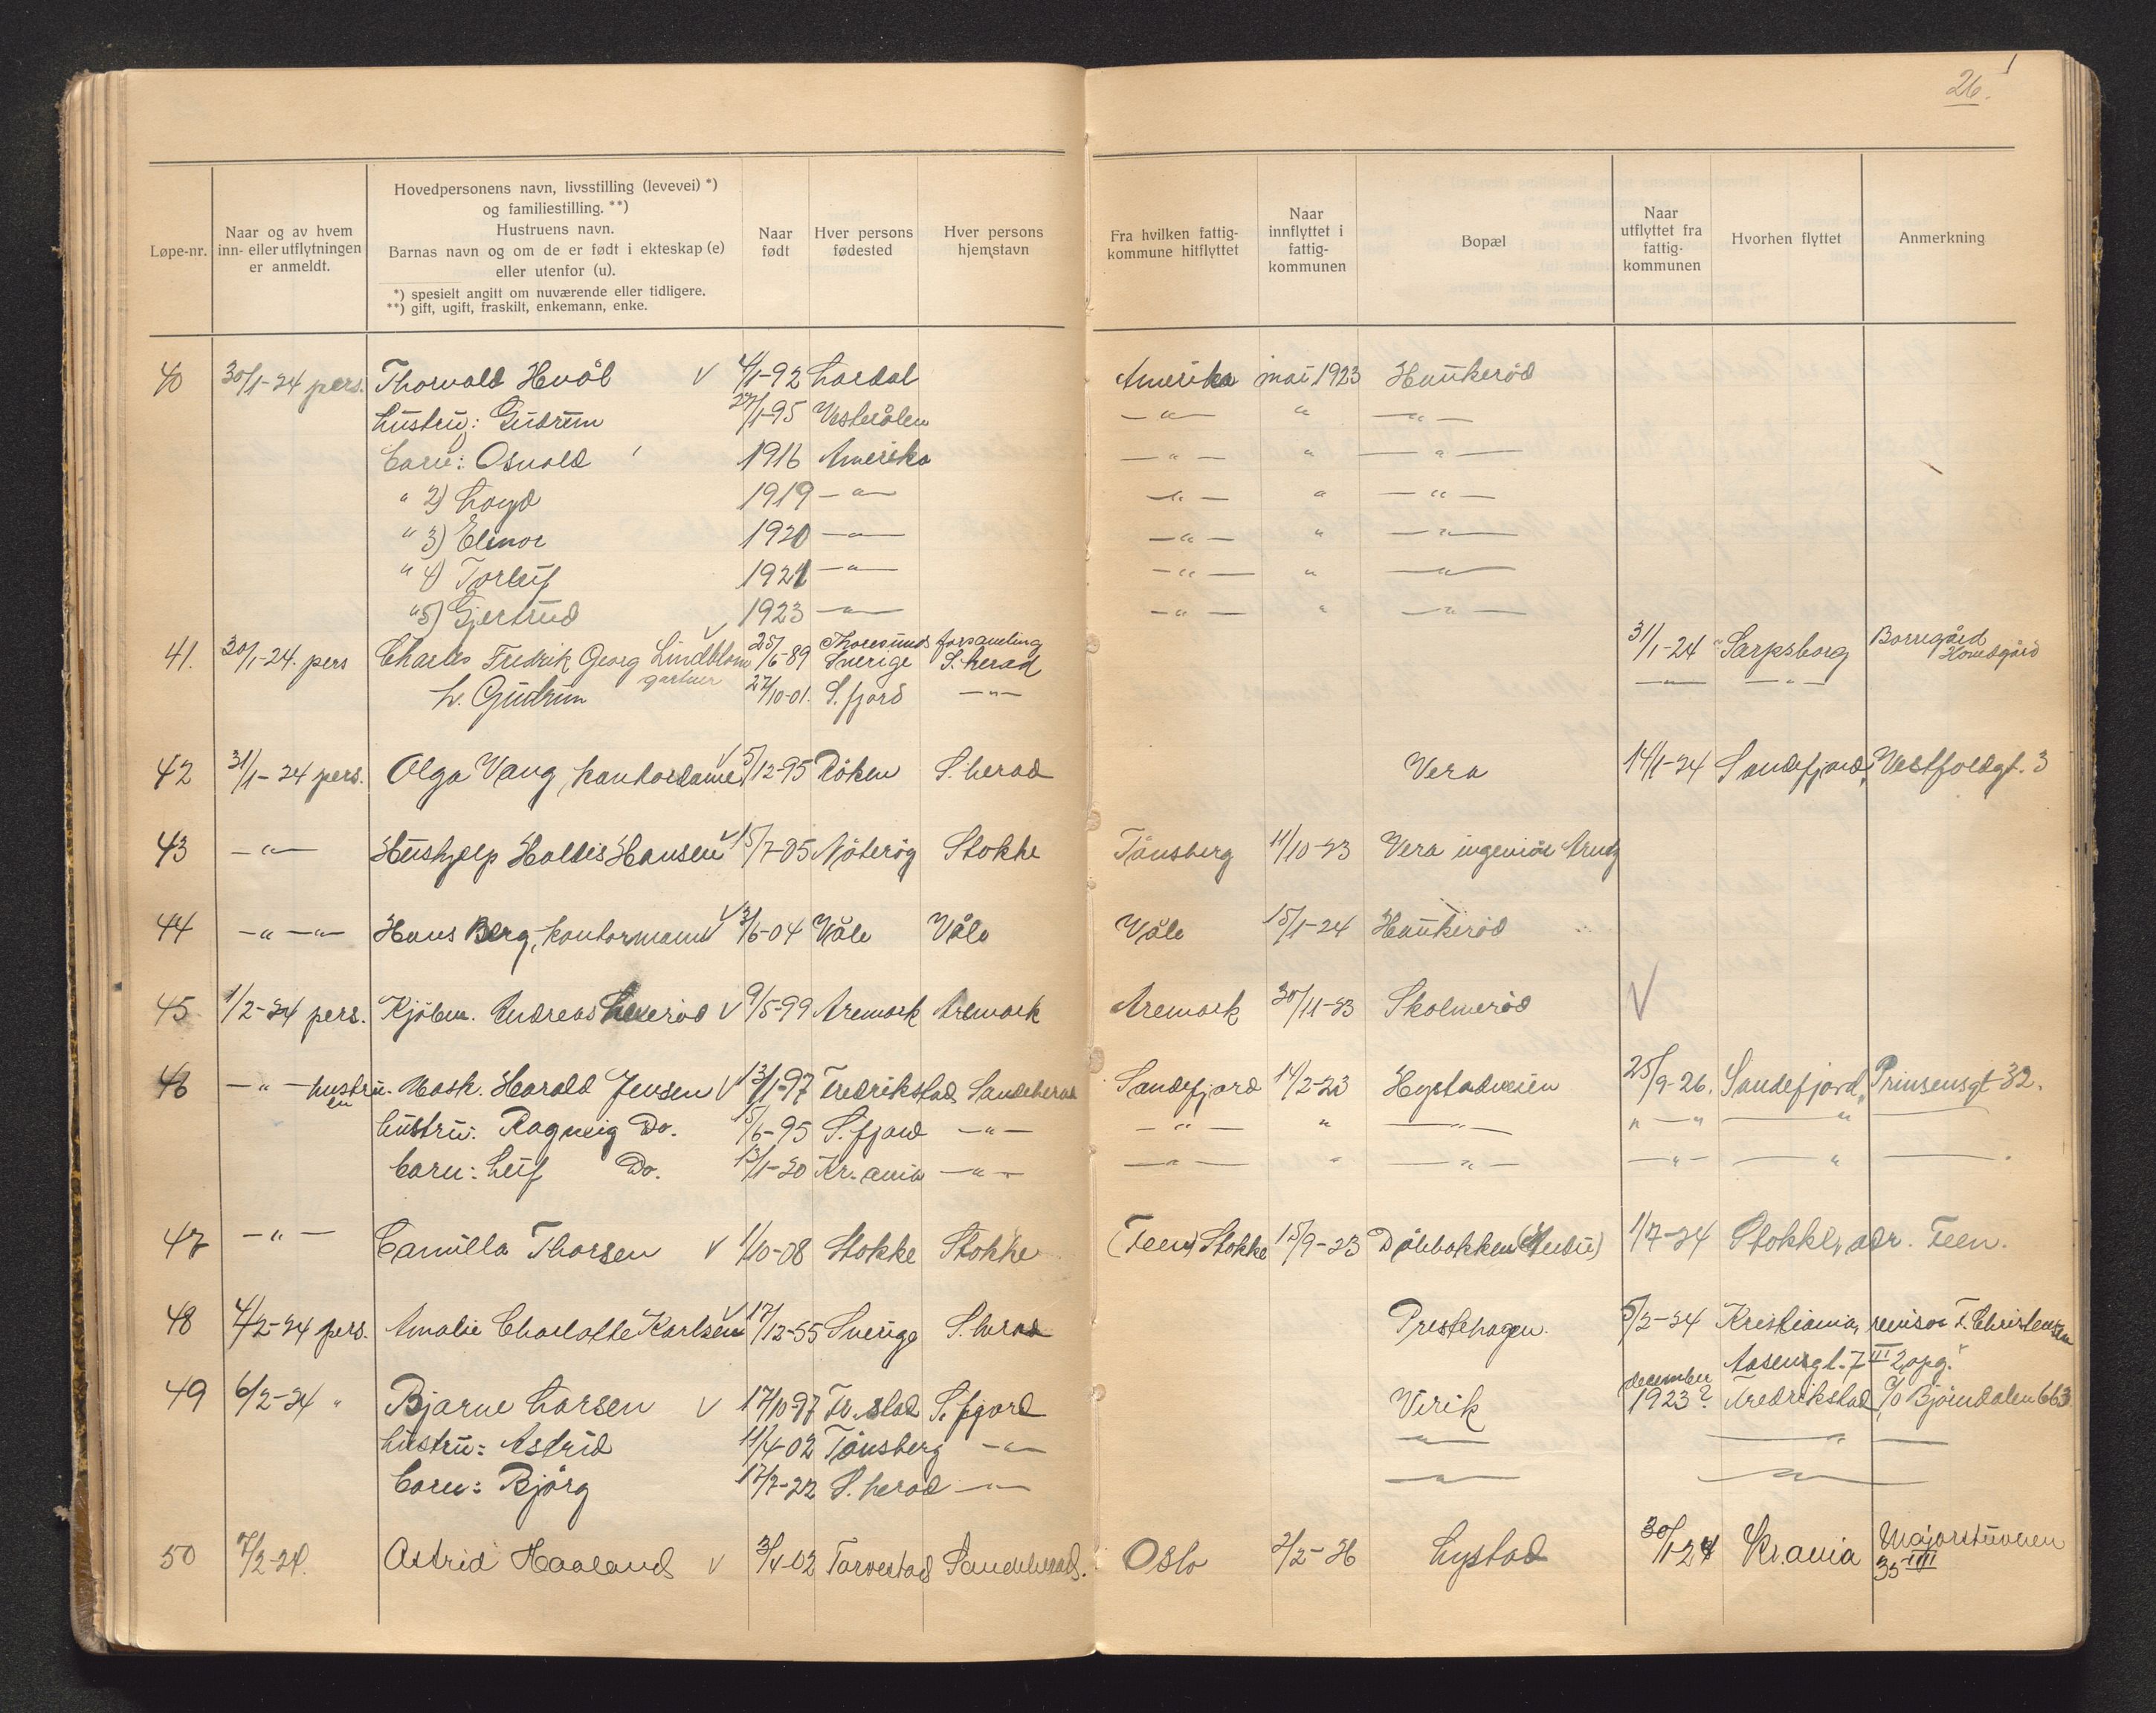 26.
Løpe-nr.
Naar og av hvem
inn- eller utflytningen
er anmeldt.
Hovedpersonens navn, livsstilling (levevei) *)
og familiestilling. **)
Hustruens navn.
Barnas navn og om de er født i ekteskap (e)
eller utenfor (u).
*) spesielt angitt om nuværende eller tidligere.
**) gift, ugift, fraskilt, enkemann, enke.
Naar
født
Hver persons
fødested
Hver persons
hjemstavn
Fra hvilken fattig-
kommune hitflyttet
Naar
innflyttet i
fattig-
kommunen
Bopæl
Naar
utflyttet fra
fattig-
kommunen
Hvorhen flyttet
Anmerkning
40 30/1-24 pers. Thorvald Hvål V 4/1-92 Lardal Amerika mai 1923 Haukerød
hustru: Gudrun 27/1-95 Vesterålen — " — " — " —
barn: Osvald 1916 Amerika — " — " — " —
" 2) Loyd 1919 — " — — " — " — " —
" 3) Elinor 1920 — " — — " — " — " —
" 4) Torleif 1921 — " — — " — " — " —
" 5) Gjertrud 1923 — " — — " — " — " —
41. 30/1-24. pers Charles Fredrik Georg Lindblom V 25/6-89 Thoresunds forsamling Sverige S. herad 31/1-24 Sarpsborg Borregård Hovedgård
gartner
h. Gudrun 27/10-01. S. fjord — " — — " — — " —
42 31/1-24 pers. Olga Vang, kontordame V 5/12-95 Röken S. herad Vera 14/1-24 Sandefjord, Vestfoldgt. 3
43 — " — Hushjelp Halldis Hansen V 15/7-05 Nöteröy Stokke Tönsberg 11/10-23 Vera ingeniör Arntz
44 — " — " — Hans Berg, kontormann V 3/6-04 Våle Våle Våle 15/1-24 Haukeröd
45 1/2-24 pers. Kjöbm. Andreas V 9/5-99 Aremark Aremark Aremark 30/11-23 Skolmeröd V
46 — " — hustruen Mask. Harald Jensen V 13/1-97 Fredrikstad Sandeherad Sandefjord 14/2-23 Hystadveien 25/9-26. Sandefjord, Prinsensgt 32.
hustru: Ragnvig Do. 15/6-95 S. fjord — " — — " — " — " — " — " — " —
barn: Leif Do. 13/1-20 Kr.ania — " — — " — " — " — — " — — " — .
47 — " — Camilla Thorsen V 1/10-08 Stokke Stokke (Feen) Stokke 15/9-23 Dölebakken 1/7-24 Stokke, adr. Feen.
48 4/2-24 pers. Amalie Charlotte Karlsen V 17/12-55 Sverige S. herad Prestehagen. 5/2-24 Kristiania, revisor F. Christensen
Aasengt. 7 III 2 opg.
49 6/2-24 " Bjarne Larsen V 17/10-97 Fr.stad S. fjord Virik december 1923? Fredrikstad, c/o Björndalen 663
hustru: Astrid 11/4-02 Tönsberg — " — — " — — " — —
barn: Björg 17/7-22 S. herad — " — — " — — " —
50 7/2-24. Astrid Haaland V 3/4-02 Torvestad Sandeherad. Oslo 2/2-26 Lystad 30/1-24 Kr.ania Majorstuveien
35 III